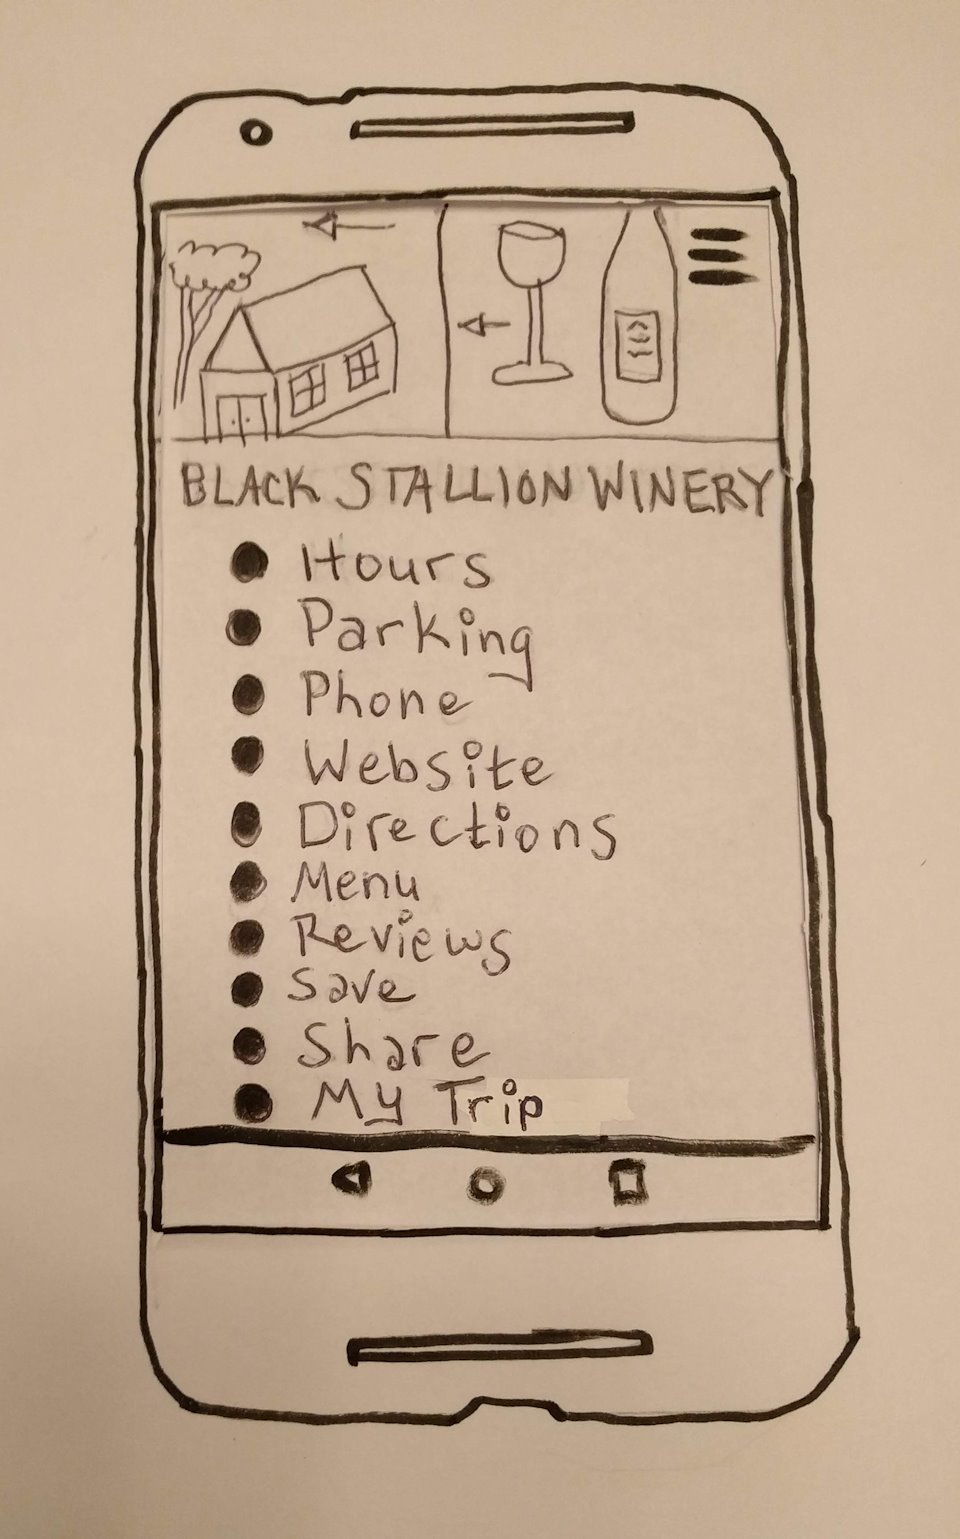 BLACK STALLION WINERY
Hours
Parking
Phone
Website
Directions
Menu
Reviews
Save
Share
My Trip